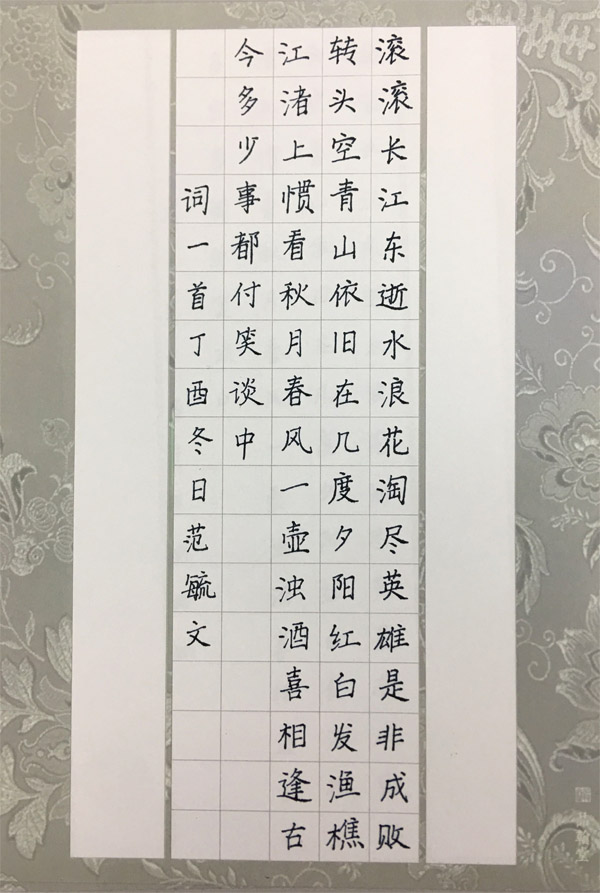 滚滚长江东逝水浪花淘尽英雄是非成败
转头空青山依旧在几度夕阳红白发渔樵
江渚上惯看秋月春风一壶浊酒喜相逢古
今多少事都付笑谈中
词一首丁酉冬日范毓文